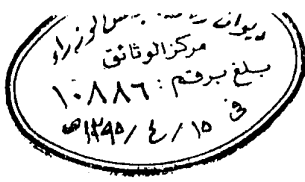 ديوان رئاسة مجلس الوزراء
مركز الوثائق
بلغ برقم : ١٠٨٨٦
في ١٥ / ٤ / ١٣٩٥ هـ